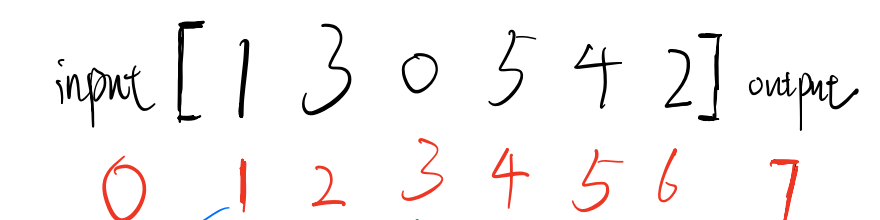 input [ 1 3 0 5 4 2 ] output
0 1 2 3 4 5 6 7